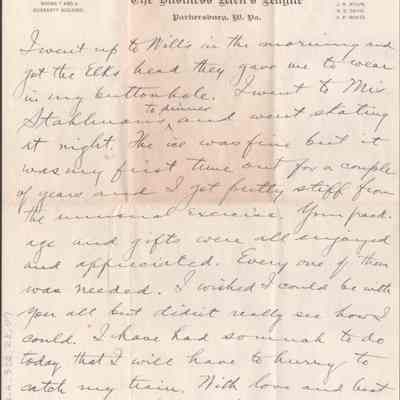 ROOMS 7 AND 8
GUARANTY BUILDING.
The Business Men's League
Parkersburg, W. Va.
I went up to Will's in the morning and
got the Elks head they gave me to wear
in my buttonhole. I went to Mrs
Stahlmans to dinner and went skating
at night. The ice was fine but it
was my first time out for a couple
of years and I got pretty stiff from
the unusual exercise. Your pack-
age and gifts were all enjoyed
and appreciated. Every one of them
was needed. I wished I could be with
you all but didn't really see how I
could. I have had so much to do
today that I will have to hurry to
catch my train. With love and best